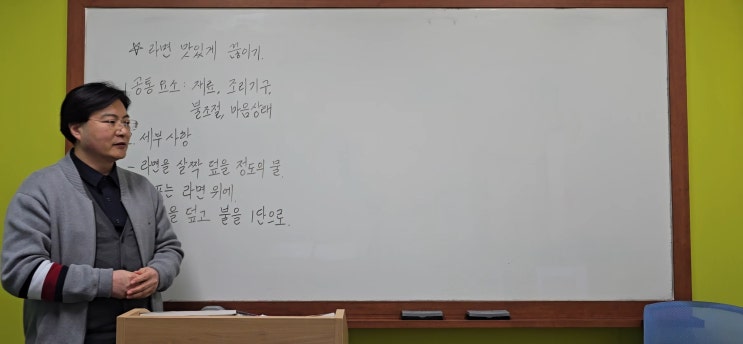 ☆ 라면 맛있게 끓이기.
1. 공통요소: 재료, 조리기구,
불조절, 마음상태
세부사항
- 라면을 살짝 덮을 정도의 물.
라면 위에.
덮고 불을 1단으로.